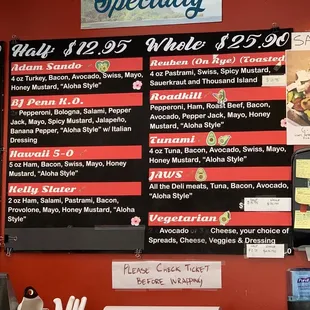 Specialty
Half $12.95
Whole $25.90
Adam Sando
4 oz Turkey, Bacon, Avocado, Swiss, Mayo,
Honey Mustard, "Aloha Style"
BJ Penn K.O.
Pepperoni, Bologna, Salami, Pepper
Jack, Mayo, Spicy Mustard, Jalapeño,
Banana Pepper, "Aloha Style" w/ Italian
Dressing
Hawaii 5-0
5 oz Ham, Bacon, Swiss, Mayo, Honey
Mustard, "Aloha Style"
Kelly Slater
2 oz Ham, Salami, Pastrami, Bacon,
Provolone, Mayo, Honey Mustard, "Aloha
Style"
Reuben (On Rye) (Toasted
4 oz Pastrami, Swiss, Spicy Mustard,
Sauerkraut and Thousand Island
Roadkill
Pepperoni, Ham, Roast Beef, Bacon,
Avocado, Pepper Jack, Mayo, Honey Mustard,
"Aloha Style"
Tunami
4 oz Tuna, Bacon, Avocado, Swiss, Mayo,
Honey Mustard, "Aloha Style"
JAWS
All the Deli meats, Tuna, Bacon, Avocado,
"Aloha Style"
Vegetarian
Avocado or Cheese, your choice of
Spreads, Cheese, Veggies & Dressing
Please Check Ticket
Before Wrapping